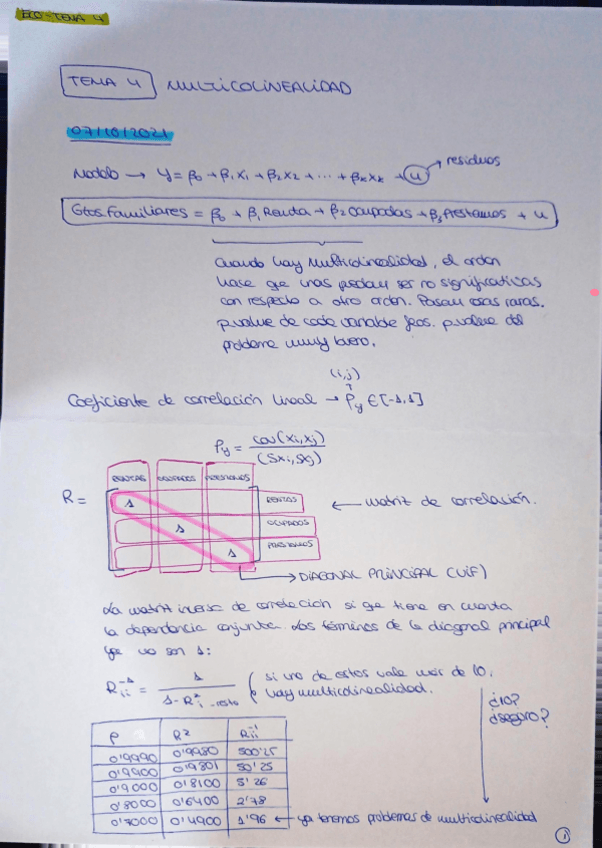 ECO-TEMA 4
TEMA 4 MULTICOLINEALIDAD
07/10/2021
Modelo → Y = β0 + β1X1 + β2X2 + ... + βkXk + u → residuos
Gtos.Familiares = β0 + β1 Renta + β2 Ocupados + β3 Préstamos + u
Cuando hay Multicolinealidad, el orden
hace que unas puedan ser no significativas
con respecto a otro orden. Pasan cosas raras.
p.value de cada variable feos. p.value del
problema muy bueno.
(i,j)
Coeficiente de correlación lineal → ρij ∈ [-1,1]
ρij = cov(xi,xj) / (Sxi,Sxj)
RENTAS OCUPADOS PRESTAMOS
R = 1 RENTAS ← matriz de correlación.
1 OCUPADOS
1 PRESTAMOS
→ DIAGONAL PRINCIPAL (VIF)
La matriz inversa de correlación si que tiene en cuenta
la dependencia conjunta. Los términos de la diagonal principal
que no son 1:
Rii⁻¹ = 1 / (1 - R²i-resto) (si uno de estos vale más de 10,
hay multicolinealidad.
¿10?
¿seguro?
ρ R² Rii⁻¹
0'9990 0'9980 500'25
0'9900 0'9801 50'25
0'9000 0'8100 5'26
0'8000 0'6400 2'78
0'7000 0'4900 1'96 ← ya tenemos problemas de multicolinealidad
1